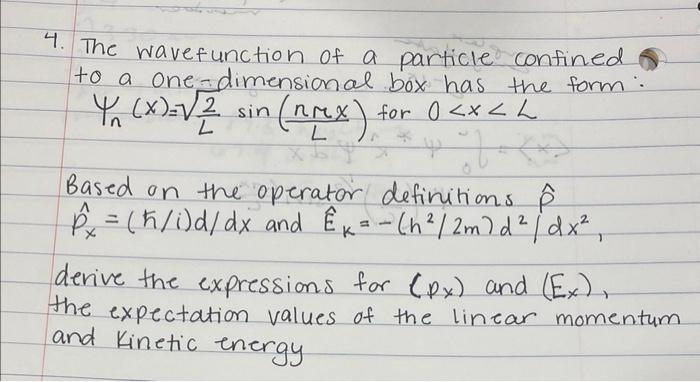 4. The wavefunction of a particle confined
to a one-dimensional box has the form:
Ψn (x)=√2/L sin (nπx/L) for 0<x<L
Based on the operator definitions p̂
p̂x = (ħ/i)d/dx and ÊK = -(h²/2m)d²/dx²,
derive the expressions for (px) and (Ex),
the expectation values of the linear momentum
and Kinetic energy